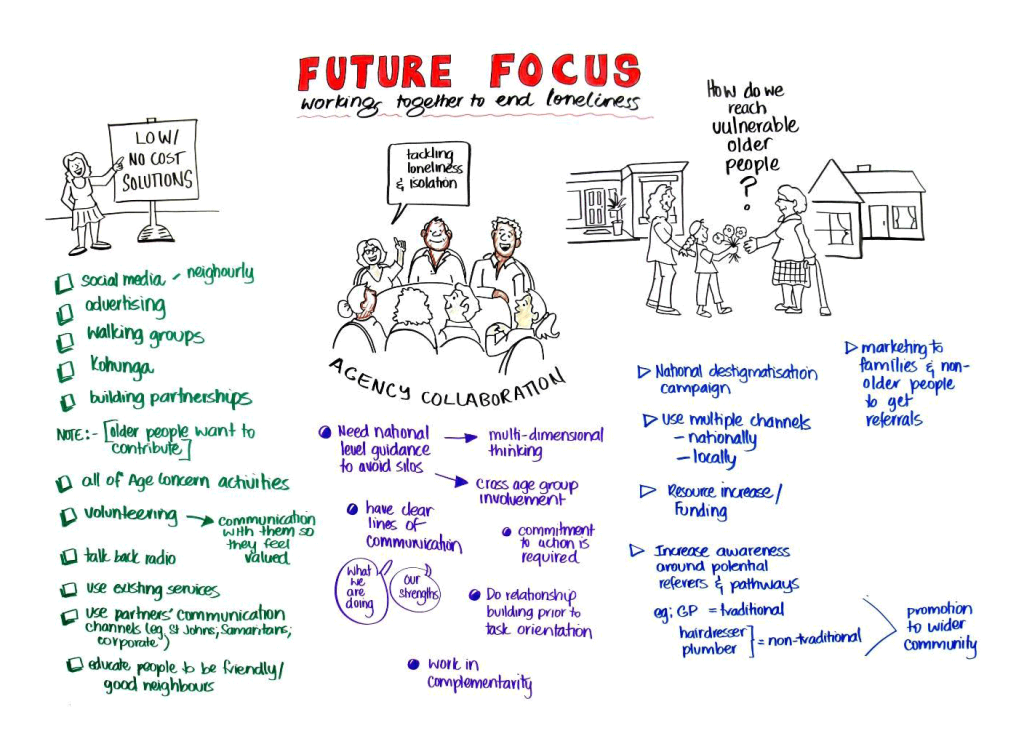 FUTURE FOCUS
working together to end loneliness
LOW/
NO COST
SOLUTIONS
social media - neighourly
advertising
walking groups
Kohunga
building partnerships
NOTE:- [older people want to
contribute]
all of Age Concern activities
volunteering → communication
with them so
they feel
valued
talk back radio
use existing services
use partners' communication
channels (eg, St Johns, Samaritans,
corporate)
educate people to be friendly/
good neighbours
tackling
loneliness
& isolation
AGENCY COLLABORATION
Need national
level guidance
to avoid silos
→ multi-dimensional
thinking
→ cross age group
involvement
have clear
lines of
communication
what
we
are
doing
our
strengths
commitment
to action is
required
Do relationship
building prior to
task orientation
work in
complementarity
How do we
reach
vulnerable
older
people
?
National destigmatisation
campaign
Use multiple channels
- nationally
- locally
Resource increase/
Funding
Increase awareness
around potential
referers & pathways
eg: GP = traditional
hairdresser
plumber ] = non-traditional
promotion
to wider
community
marketing to
families & non-
older people
to get
referrals